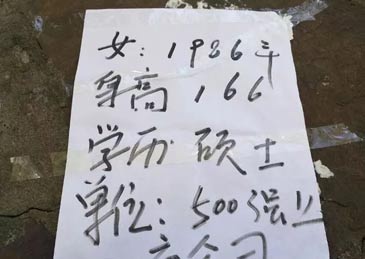 女：1986年
身高166
学历硕士
单位：500强业